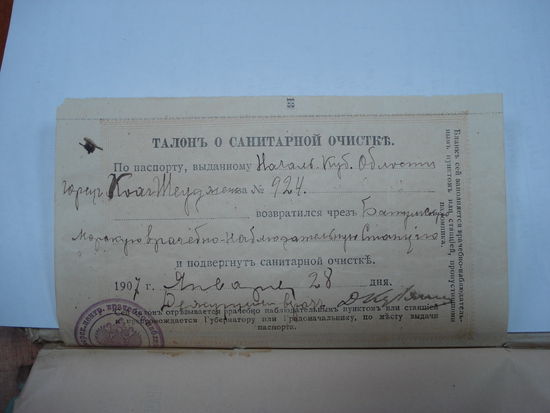 ТАЛОНЪ О САНИТАРНОЙ ОЧИСТКѢ.
По паспорту, выданному Началь. Куб. Области
за № 924.
возвратился чрезъ Батумскую
Морскую врачебно-наблюдательную Станцію
и подвергнут санитарной очисткѣ.
1907 г. Января 28 дня.
Дежурный врачъ
Талонъ отрѣзывается врачебно наблюдательнымъ пунктомъ или станціей
и препровождается Губернатору или Градоначальнику, по мѣсту выдачи
паспорта.
Бланкъ сей наполняется врачебно-наблюдатель-
нымъ пунктомъ или станціей, пропустившими
паломника.